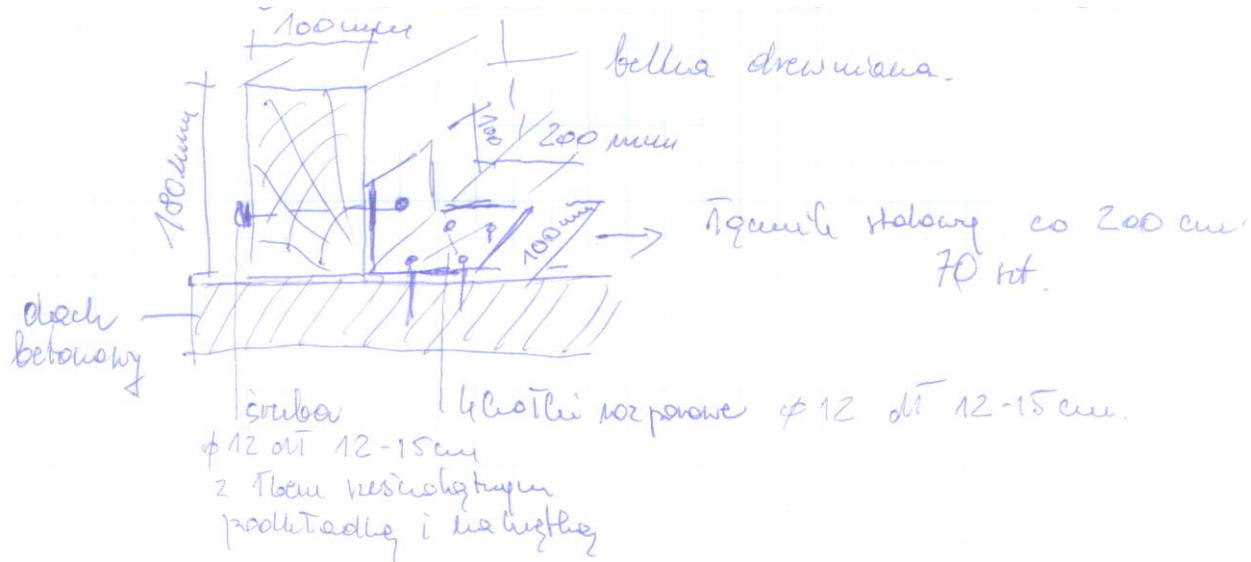 100mm
belka drewniana.
180mm
100
200 mm
100mm
łącznik stalowy co 200 cm
70 szt.
dach
betonowy
śruba
ϕ12 dł 12-15cm
z łbem sześciokątnym
podkładką i nakrętką
4 kołki rozporowe ϕ12 dł 12-15 cm.